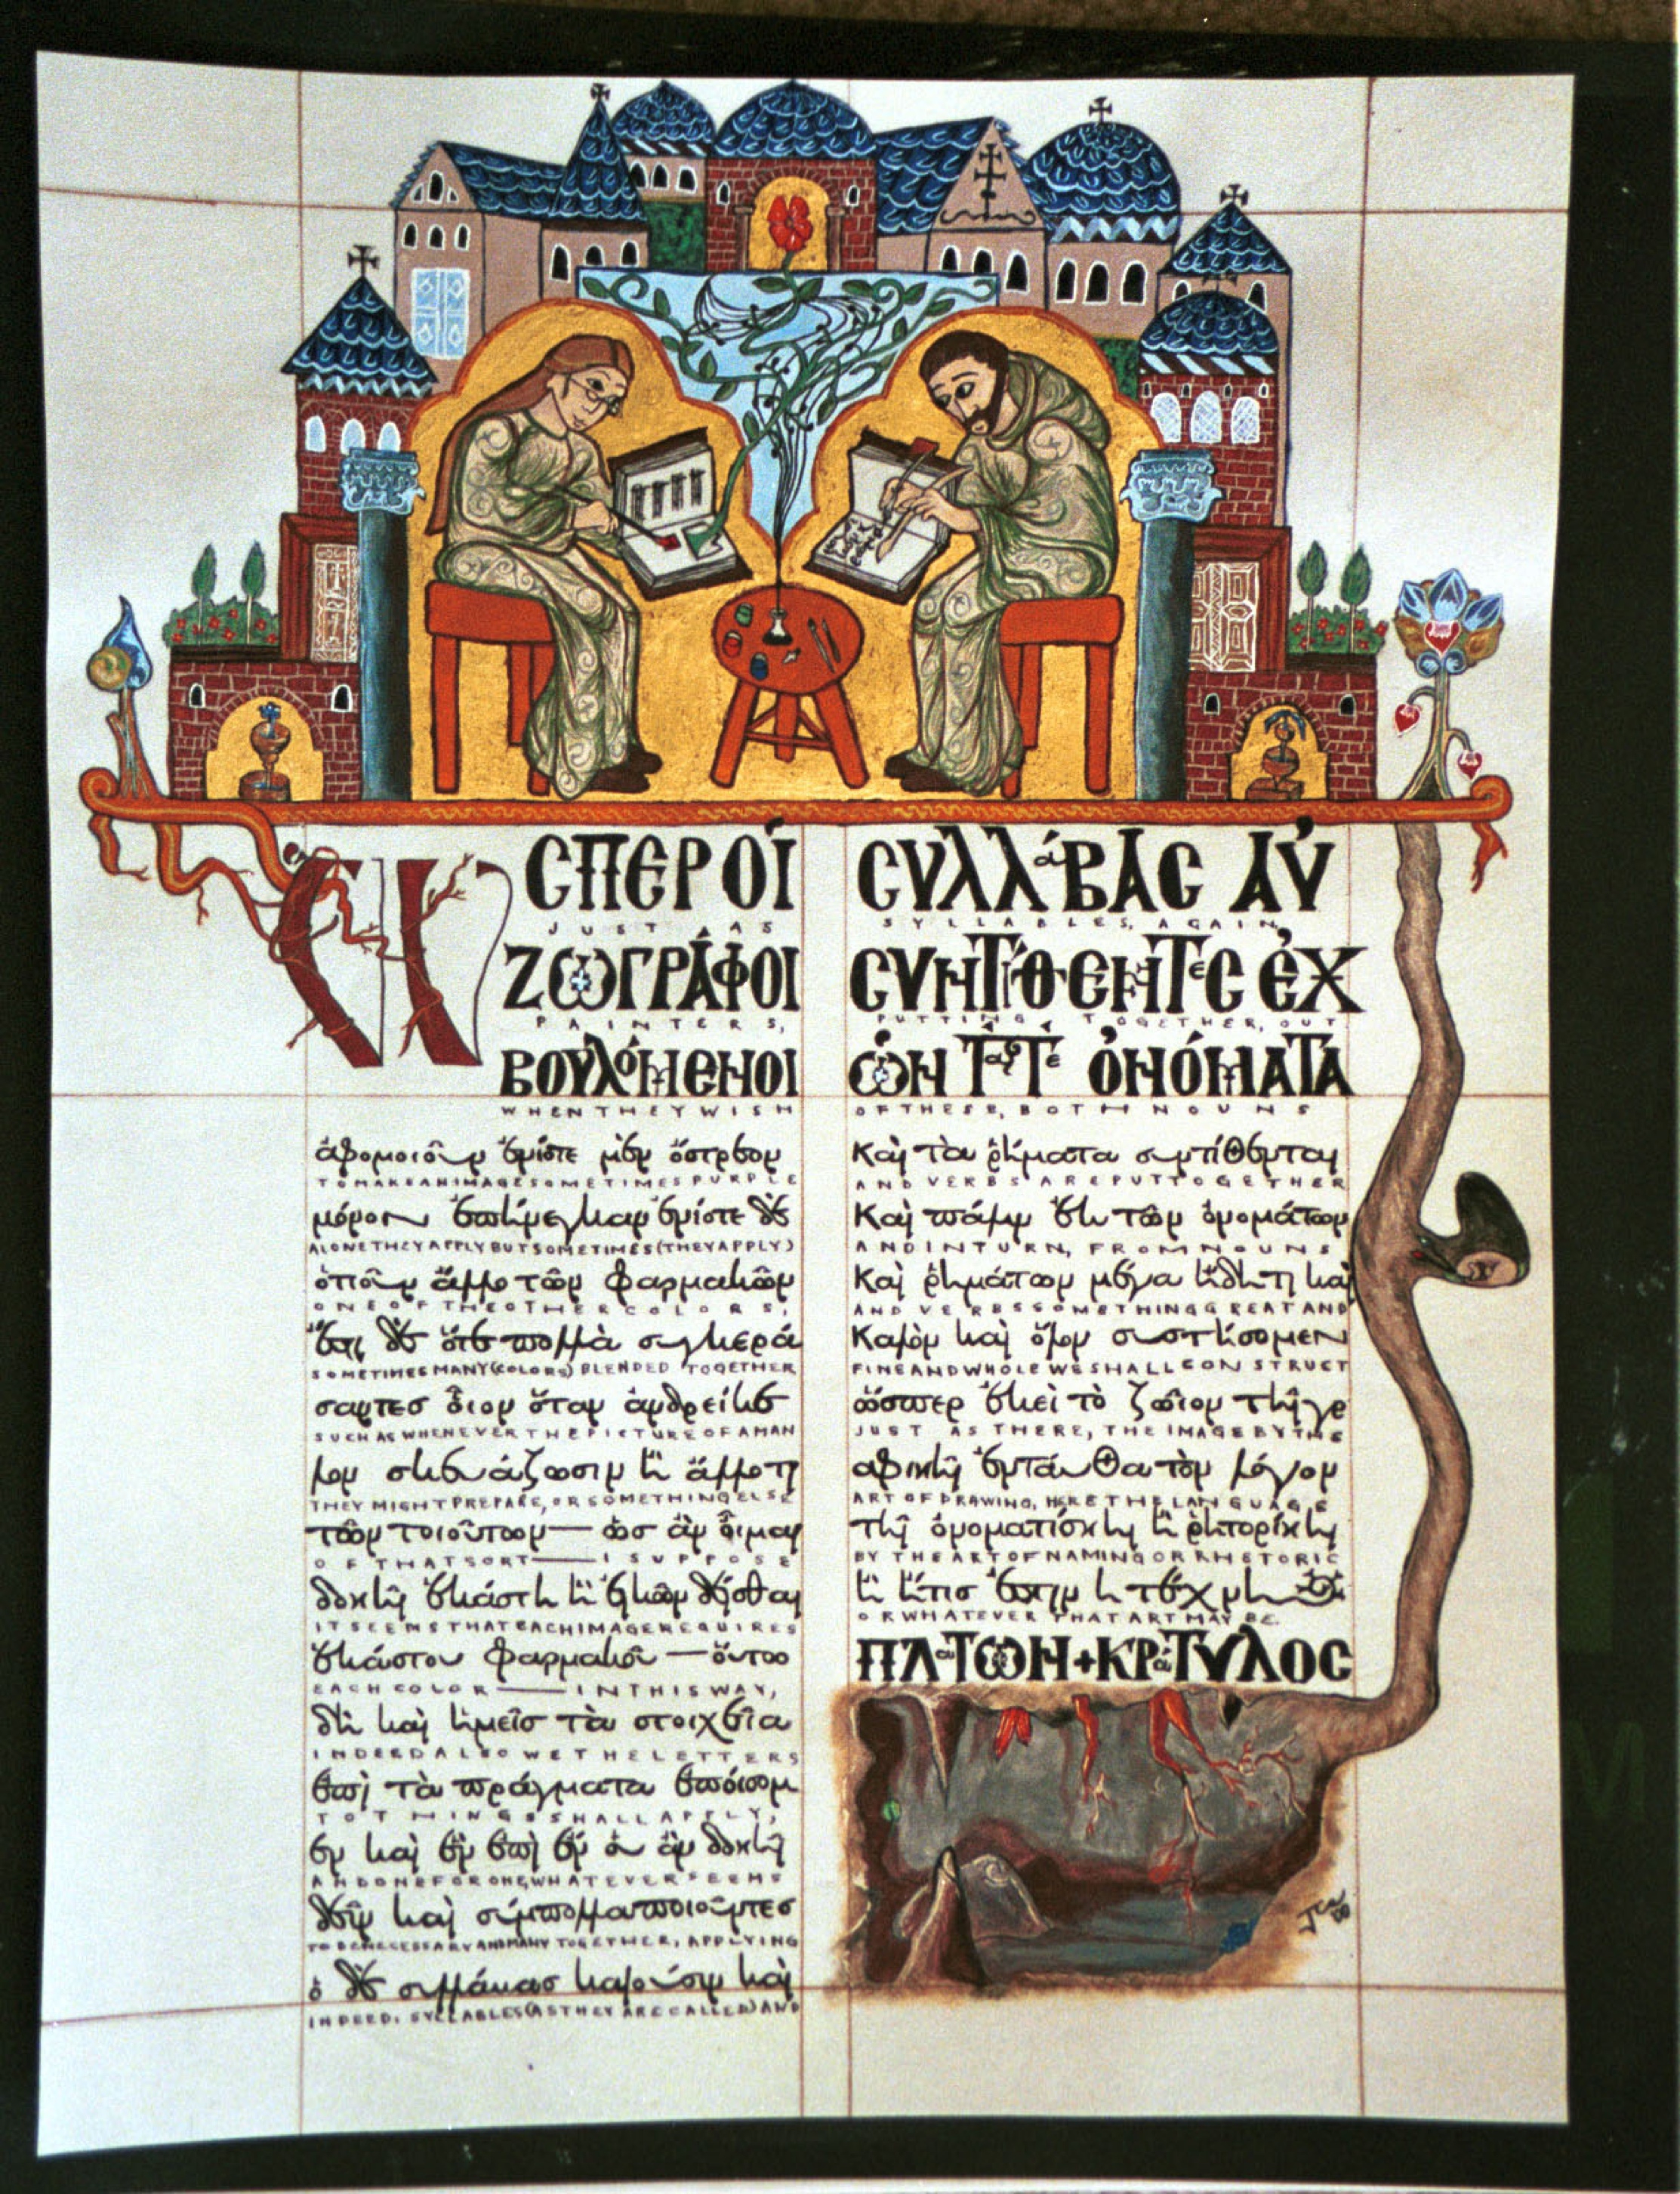 ΩϹΠΕΡ ΟἹ
JUST AS
ΖΩΓΡΆΦΟΙ
PAINTERS,
ΒΟΥΛΌΜΕΝΟΙ
WHEN THEY WISH
ἀφομοιοῦν ἐνίοτε μὲν ὄστρεον
TO MAKE AN IMAGE SOMETIMES PURPLE
μόνον ἐπήνεγκαν ἐνίοτε δὲ
ALONE THEY APPLY BUT SOMETIMES (THEY APPLY)
ὁτιοῦν ἄλλο τῶν φαρμακῶν
ONE OF THE OTHER COLORS,
ἔστι δὲ ὅτε πολλὰ συγκερά
SOMETIMES MANY (COLORS) BLENDED TOGETHER
σαντες οἷον ὅταν ἀνδρείκε
SUCH AS WHENEVER THE PICTURE OF A MAN
λον σκευάζωσιν ἢ ἄλλο τι
THEY MIGHT PREPARE, OR SOMETHING ELSE
τῶν τοιούτων — ὡς ἂν οἶμαι
OF THAT SORT — I SUPPOSE
δοκῇ ἑκάστη ἡ εἰκὼν δεῖσθαι
IT SEEMS THAT EACH IMAGE REQUIRES
ἑκάστου φαρμακοῦ — οὕτω
EACH COLOR — IN THIS WAY,
δὴ καὶ ἡμεῖς τὰ στοιχεῖα
INDEED ALSO WE THE LETTERS
ἐπὶ τὰ πράγματα ἐποίσομ
TO THINGS SHALL APPLY,
εν καὶ ἓν ἐπὶ ἓν οὗ ἂν δοκῇ
AND ONE FOR ONE, WHATEVER SEEMS
δεῖν καὶ σύμπολλα ποιοῦντες
TO BE NECESSARY AND MANY TOGETHER, APPLYING
ὃ δὲ συλλάβας καλοῦσιν καὶ
INDEED, SYLLABLES (AS THEY ARE CALLED) AND
ϹΥΛΛάΒΑϹ ΑΥ̓
SYLLABLES, AGAIN,
ϹΥΝΤΙΘΕΝΤΕϹ ἘΧ
PUTTING TOGETHER, OUT
ὩΝ ΤΑ ΤΕ ὈΝΌΜΑΤΑ
OF THESE, BOTH NOUNS
καὶ τὰ ῥήματα συντίθενται
AND VERBS ARE PUT TOGETHER
καὶ πάλιν ἐκ τῶν ὀνομάτων
AND IN TURN, FROM NOUNS
καὶ ῥημάτων μέγα ἤδη τι καὶ
AND VERBS SOMETHING GREAT AND
καλὸν καὶ ὅλον συστήσομεν
FINE AND WHOLE WE SHALL CONSTRUCT
ὥσπερ ἐκεῖ τὸ ζῷον τῇ γρ
JUST AS THERE, THE IMAGE BY THE
αφικῇ ἐνταῦθα τὸν λόγον
ART OF DRAWING, HERE THE LANGUAGE
τῇ ὀνοματίσκῃ ἢ ῥητορίκῃ
BY THE ART OF NAMING OR RHETORIC
ἢ ἥτις ἔστιν ἡ τέχνη
OR WHATEVER THAT ART MAY BE.
ΠΛαΤΩΝ+ΚΡάΤΥΛΟϹ